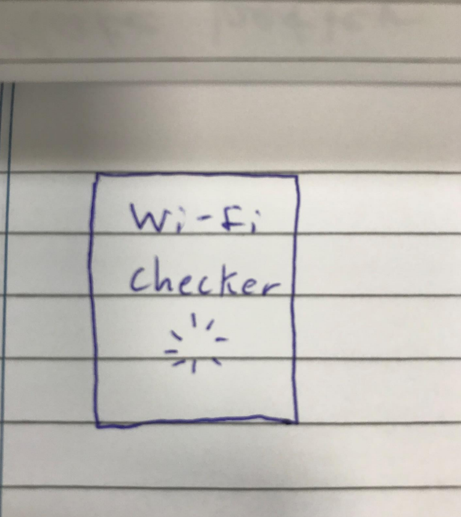 Wi-Fi
checker